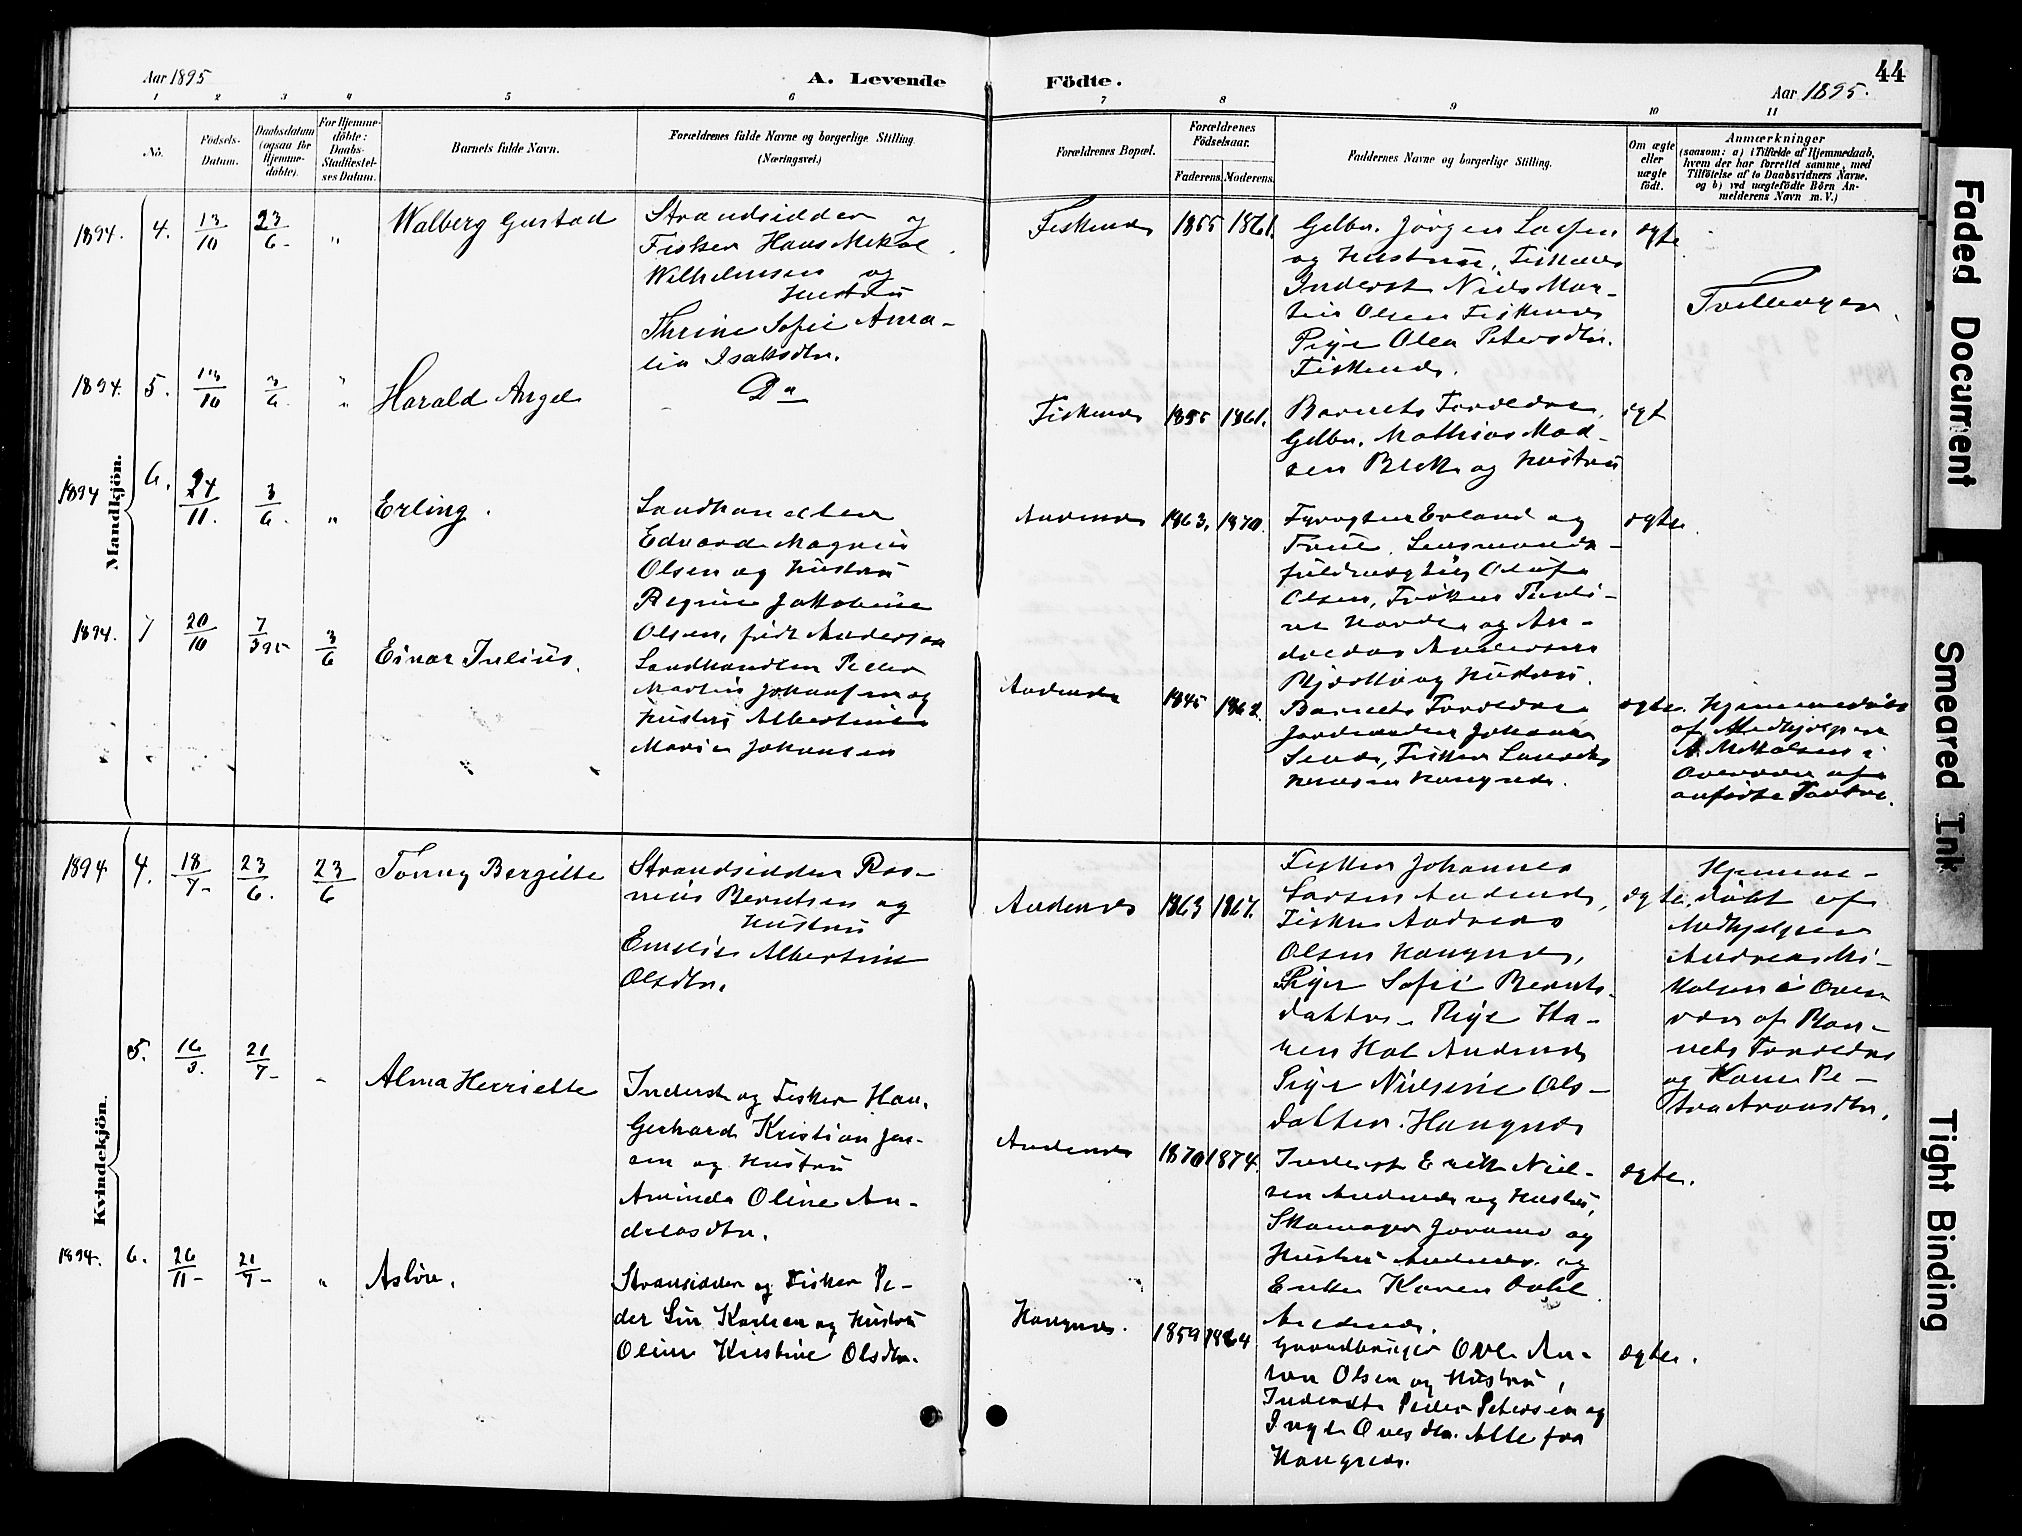 Aar 1895
A. Levende
Födte.
Aar 1895.
44
1 2 3 4 5 6 7 8 9 10 11
No.
Födsels-
Datum.
Daabsdatum
(ogsaa for
Hjemme-
döbte).
For Hjemme-
döbte:
Daabs-
Stadfæstel-
ses Datum.
Barnets fulde Navn.
Forældrenes fulde Navne og borgerlige Stilling.
(Næringsvei.)
Forældrenes Bopæl.
Forældrenes
Födselsaar.
Faderens.
Moderens.
Faddernes Navne og borgerlige Stilling.
Om ægte
eller
uægte
födt.
Anmærkninger
(saasom: a) i Tilfælde af Hjemmedaab,
hvem der har forrettet samme, med
Tilföielse af to Daabsvidners Navne,
og b) ved uægtefödte Börn An-
melderens Navn m.V.)
Mandkjön.
1894. 4. 13/10 23/6 "
Walberg Gustad
Strandsidder og
Fisker Hans Mikal
Wilhelmsen og
Hustru
Thrine Sofie Ama-
lia Isaksdtr.
Fiskenes
1855 1861.
Gdbr. Jørgen
og Hustru, Fiskenes
Inderst Niels Mar-
tin Olsen Fiskenes
Pige Olea Petersdtr.
Fiskenes.
ægte
Tvillinger.
1894. 5. 13/10 3/6 "
Harald Angel
Do
Fiskenes
1855 1861.
Barnets Forældre,
Gdbr. Mathias Mad-
sen Bleik og Hustru
ægt
1894 6. 24/11. 3/6. "
Erling.
Landhandler
Edvard Magnus
Olsen og Hustru
Regine Jakobine
Olsen, født Andersen
Andenes
1863. 1870.
Fyrvogter Erland og
Frue, Lensmands-
fuldmægtig Olaf
Olsen, Frøken
og An-
dreas Andersen
og Hustru.
ægte.
1894. 7 20/10 7/3 95 3/6
Einar Julius.
Landhandler Peder
Martin Johansen og
Hustru Albertine
Marie Johansen
Andenes
1845 1862.
Barnets Forældre
Johan
Fisker
Haugnes.
ægte.
Hjemmedøbt
af Medhjelper
A. Mikalsen i
Overvær af
anførte Fadre.
Kvindekjön.
1894 4. 18/7- 23/6. 23/6
Tonny Bergitte
Strandsidder Ras-
mus Berntsen og
Hustru
Emilie Albertine
Olsdtr.
Andenes
1863 1867.
Fisker Johannes
Larsen Andenes,
Fisker Andreas
Olsen Haugnes,
Pige Sofie Bernts-
datter - Pige Ha-
Hol Andenes
Pige Nielsine Ols-
datter. Haugnes
ægte.
Hjemme-
døbt af
Medhjelper
Andreas Mi-
kalsen i Over-
vær af Bar-
nets Forældre
og Kone Pe-
tra Aronsdtr.
5. 16/3. 21/7- -
Alma Henriette
Inderst og Fisker Han.
Gerhard Kristian Jen-
sen og Hustru
Aminda Oline An-
dreasdtr.
Andenes
1870 1874.
Inderst Erik Niel-
sen Andenes og Hustru,
Skomager og
Hustru Andenes og
Enke Karen Dahl
Andenes.
ægte.
1894. 6. 26/11- 21/7- "
Aslöv.
Strandsidder og Fisker Pe-
der Karlsen og Hustru
Oline Kristine Olsdtr.
Haugnes.
1859 1864
Gaardbruger Ove An-
ton Olsen og Hustru,
Inderst Peder Petersen og
Ovesdtr. Alle fra
Haugnes.
ægte.
Faded Document
Smeared Ink
Tight Binding